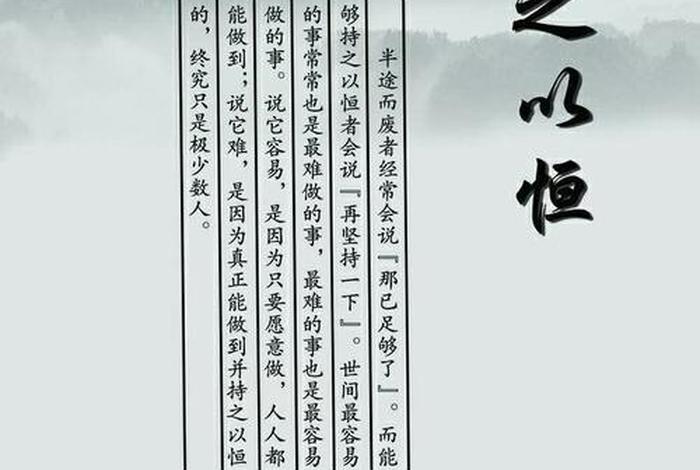 之以恒
半途而废者经常会说『那已足够了』。而能
够持之以恒者会说『再坚持一下』。世间最容易
的事常常也是最难做的事，最难的事也是最容易
做的事。说它容易，是因为只要愿意做，人人都
能做到；说它难，是因为真正能做到并持之以恒
的，终究只是极少数人。